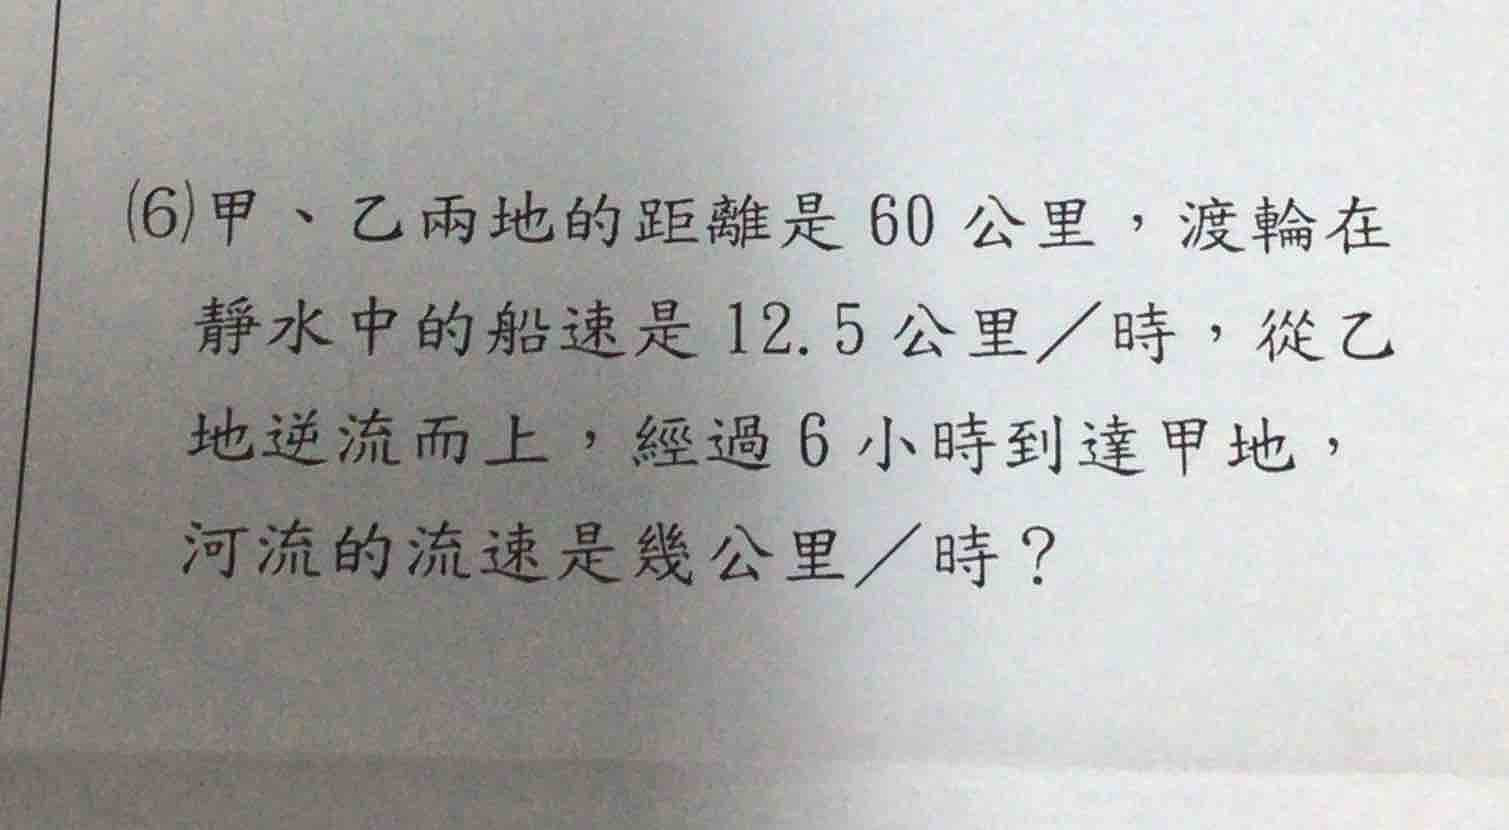 (6)甲、乙兩地的距離是 60 公里，渡輪在
靜水中的船速是 12.5 公里／時，從乙
地逆流而上，經過 6 小時到達甲地，
河流的流速是幾公里／時？